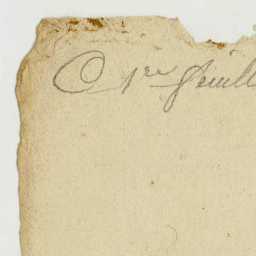 C 1re feuill